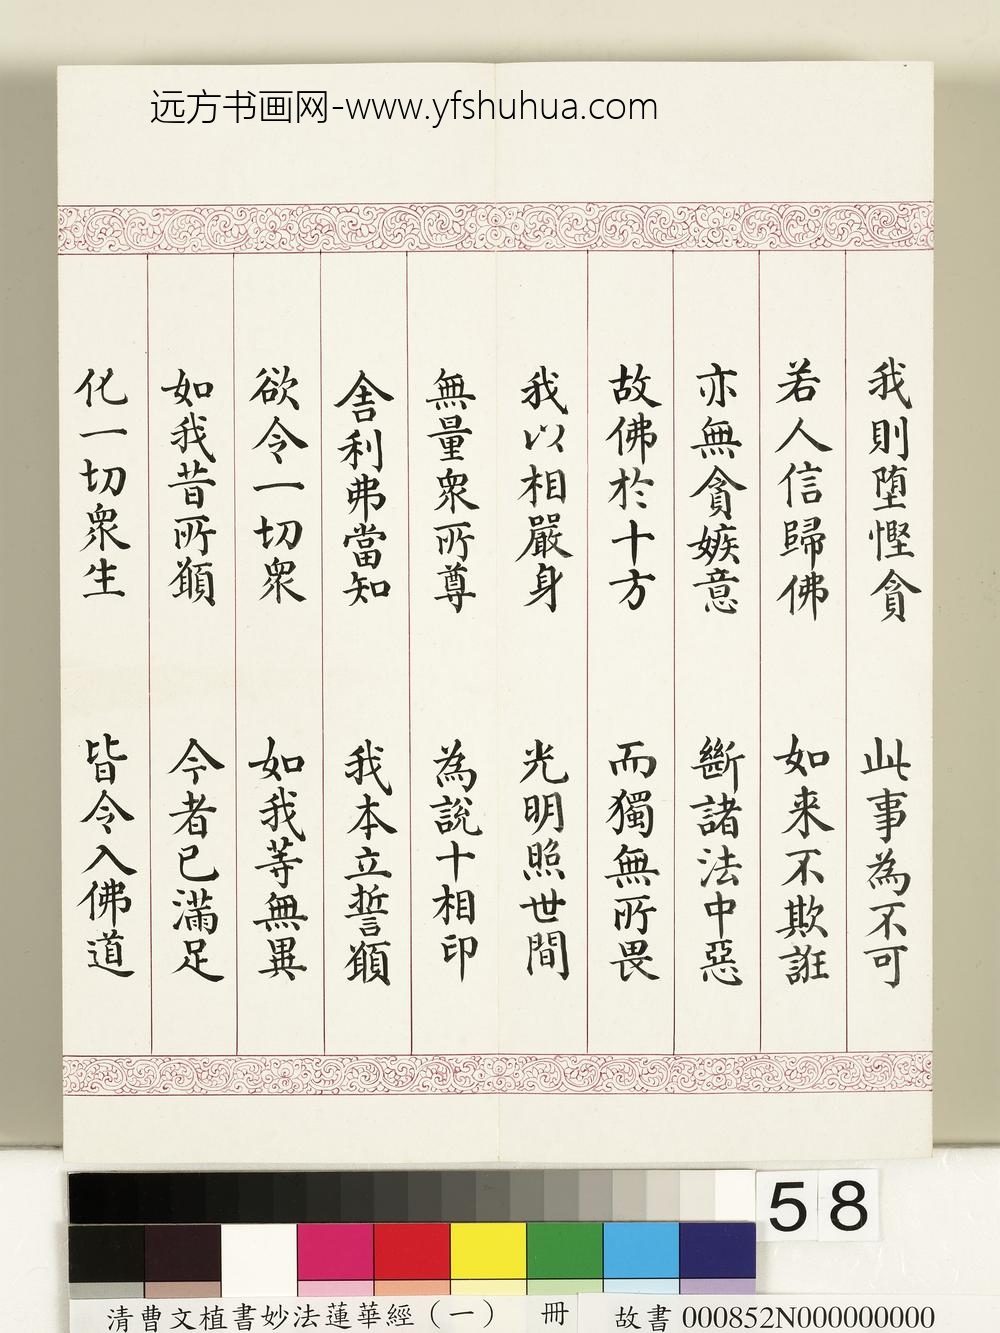 远方书画网-www.yfshuhua.com
我則堕慳貪　此事為不可
若人信歸佛　如来不欺誑
亦無貪嫉意　斷諸法中惡
故佛於十方　而獨無所畏
我以相嚴身　光明照世間
無量衆所尊　為説十相印
舎利弗當知　我本立誓願
欲令一切衆　如我等無異
如我昔所願　今者已滿足
化一切衆生　皆令入佛道
58
清曹文植書妙法蓮華經（一）　冊　故書000852N000000000